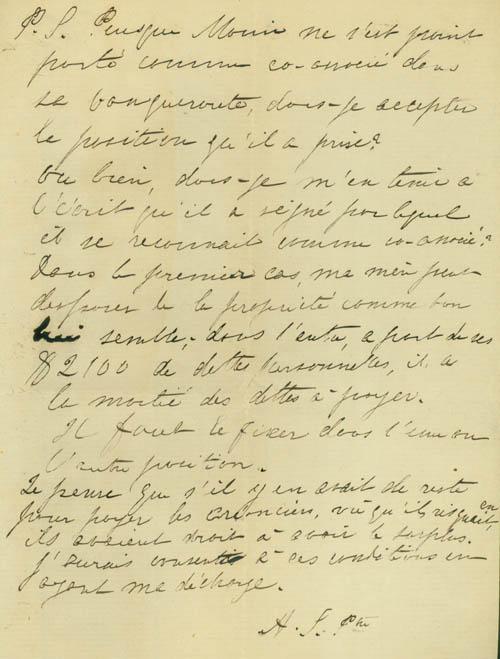 P. S. Puisque Morin ne s'est point
porté comme co-associé dans
sa banqueroute, dois-je accepter
la position qu'il a prise?
Ou bien, dois-je m'en tenir a
l'écrit qu'il a signé par lequel
il se reconnait comme co-associé?
Dans le premier cas, ma mère peut
disposer de la propriété comme bon
lui semble; dans l'autre, a part de ses
$2100 de dettes personnelles, il a
la moitié des dettes à payer.
Il faut le fixer dans l'une ou
l'autre position.
Je pense que s'il y en avait de reste
pour payer les créanciers, vû qu'ils risquait en
ils avaient droit à avoir le surplus.
J'aurais consentis à ces conditions en
ayant ma décharge.
A. L. Ptre